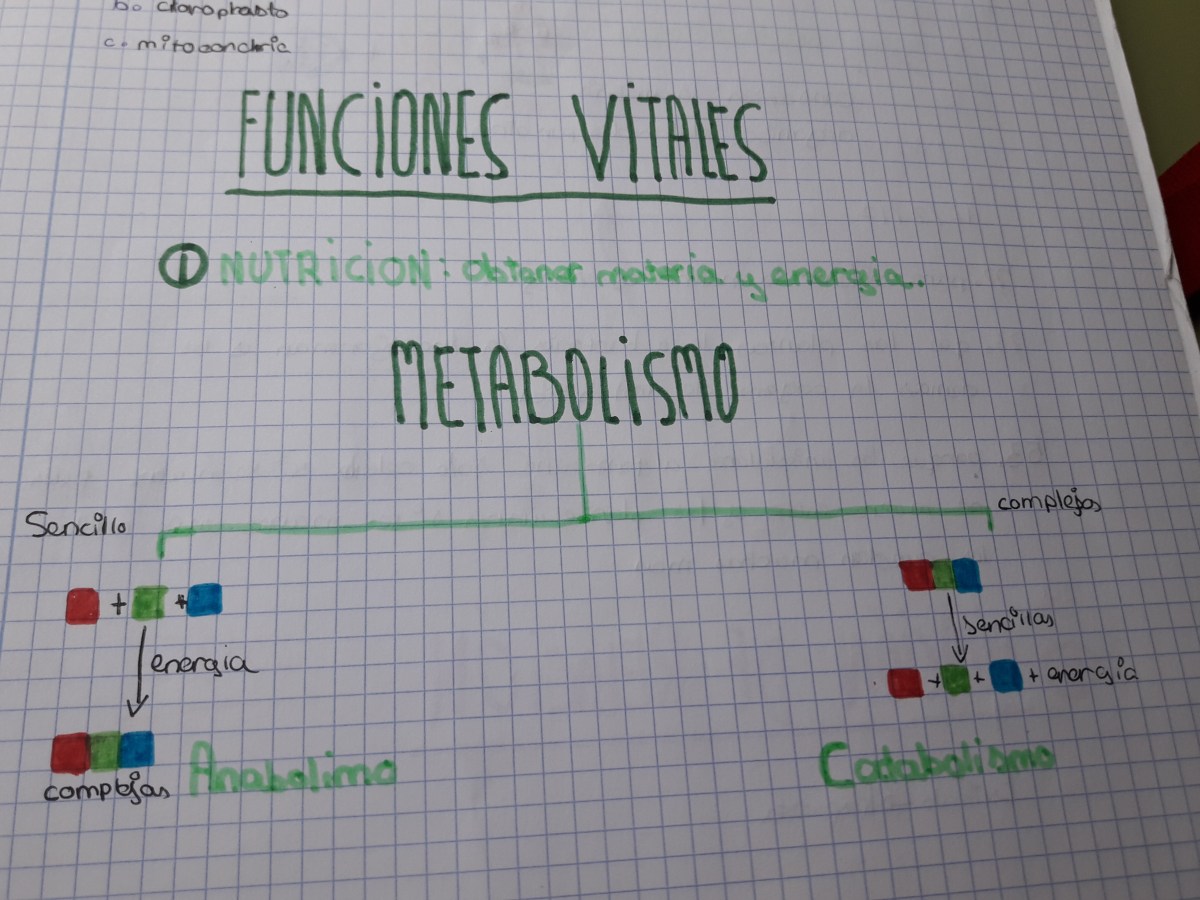 b. cloroplasto
c. mitocondria
FUNCIONES VITALES
① NUTRICION: Obtener materia y energia.
METABOLISMO
Sencillo
complejos
+ +
energia
sencillas
+ + + energia
complejas
Anabolimo
Catabolismo